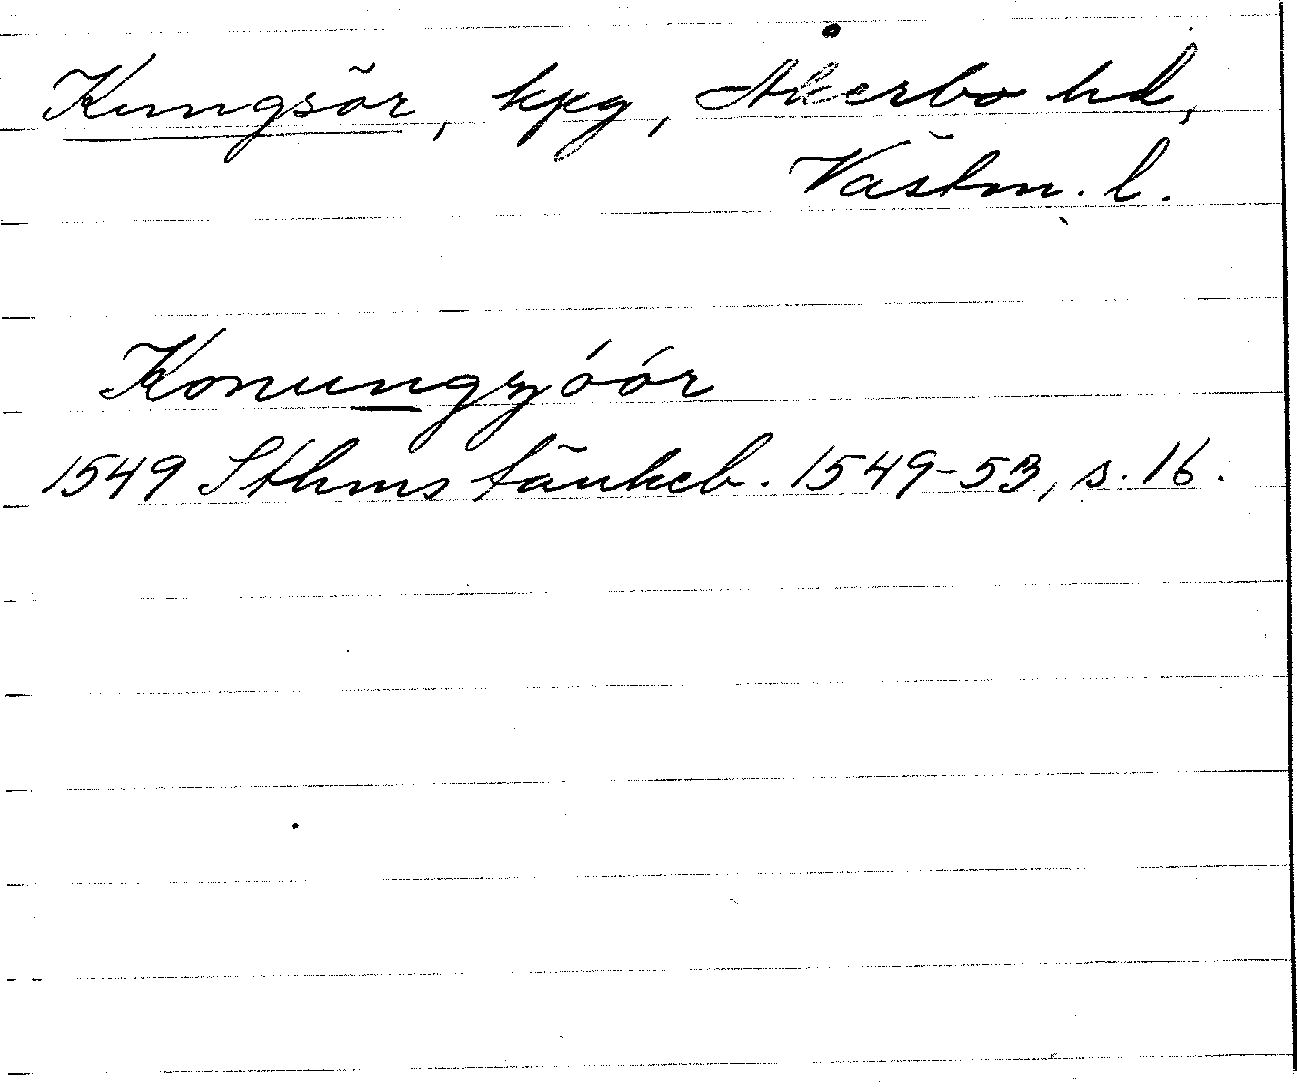 Kungsör, kpg, Åkerbo hd,
Västm. l.
Konungzóór
1549 Sthms tänkeb. 1549-53, s. 16.